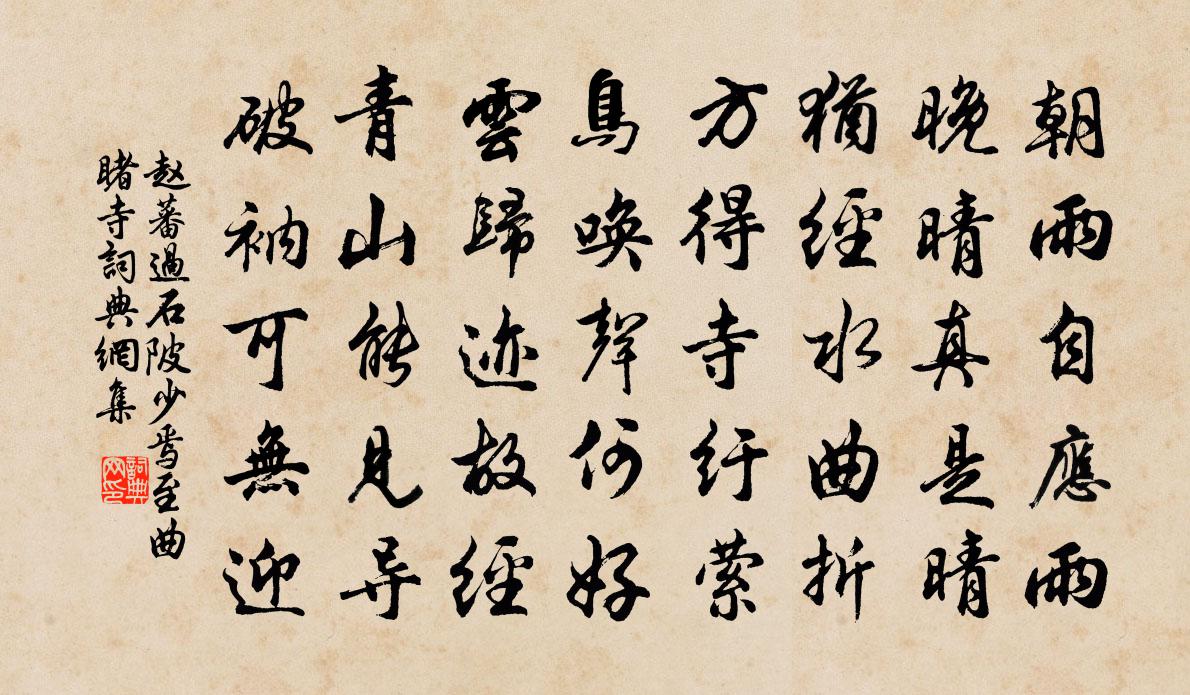 朝雨自應雨
晚晴真是晴
猶經水曲折
方得寺紆縈
鳥喚聲何好
雲歸迹故經
青山能見导
破衲可無迎
赵蕃過石陂少焉至曲
睹寺詞典網集
詞典
网印